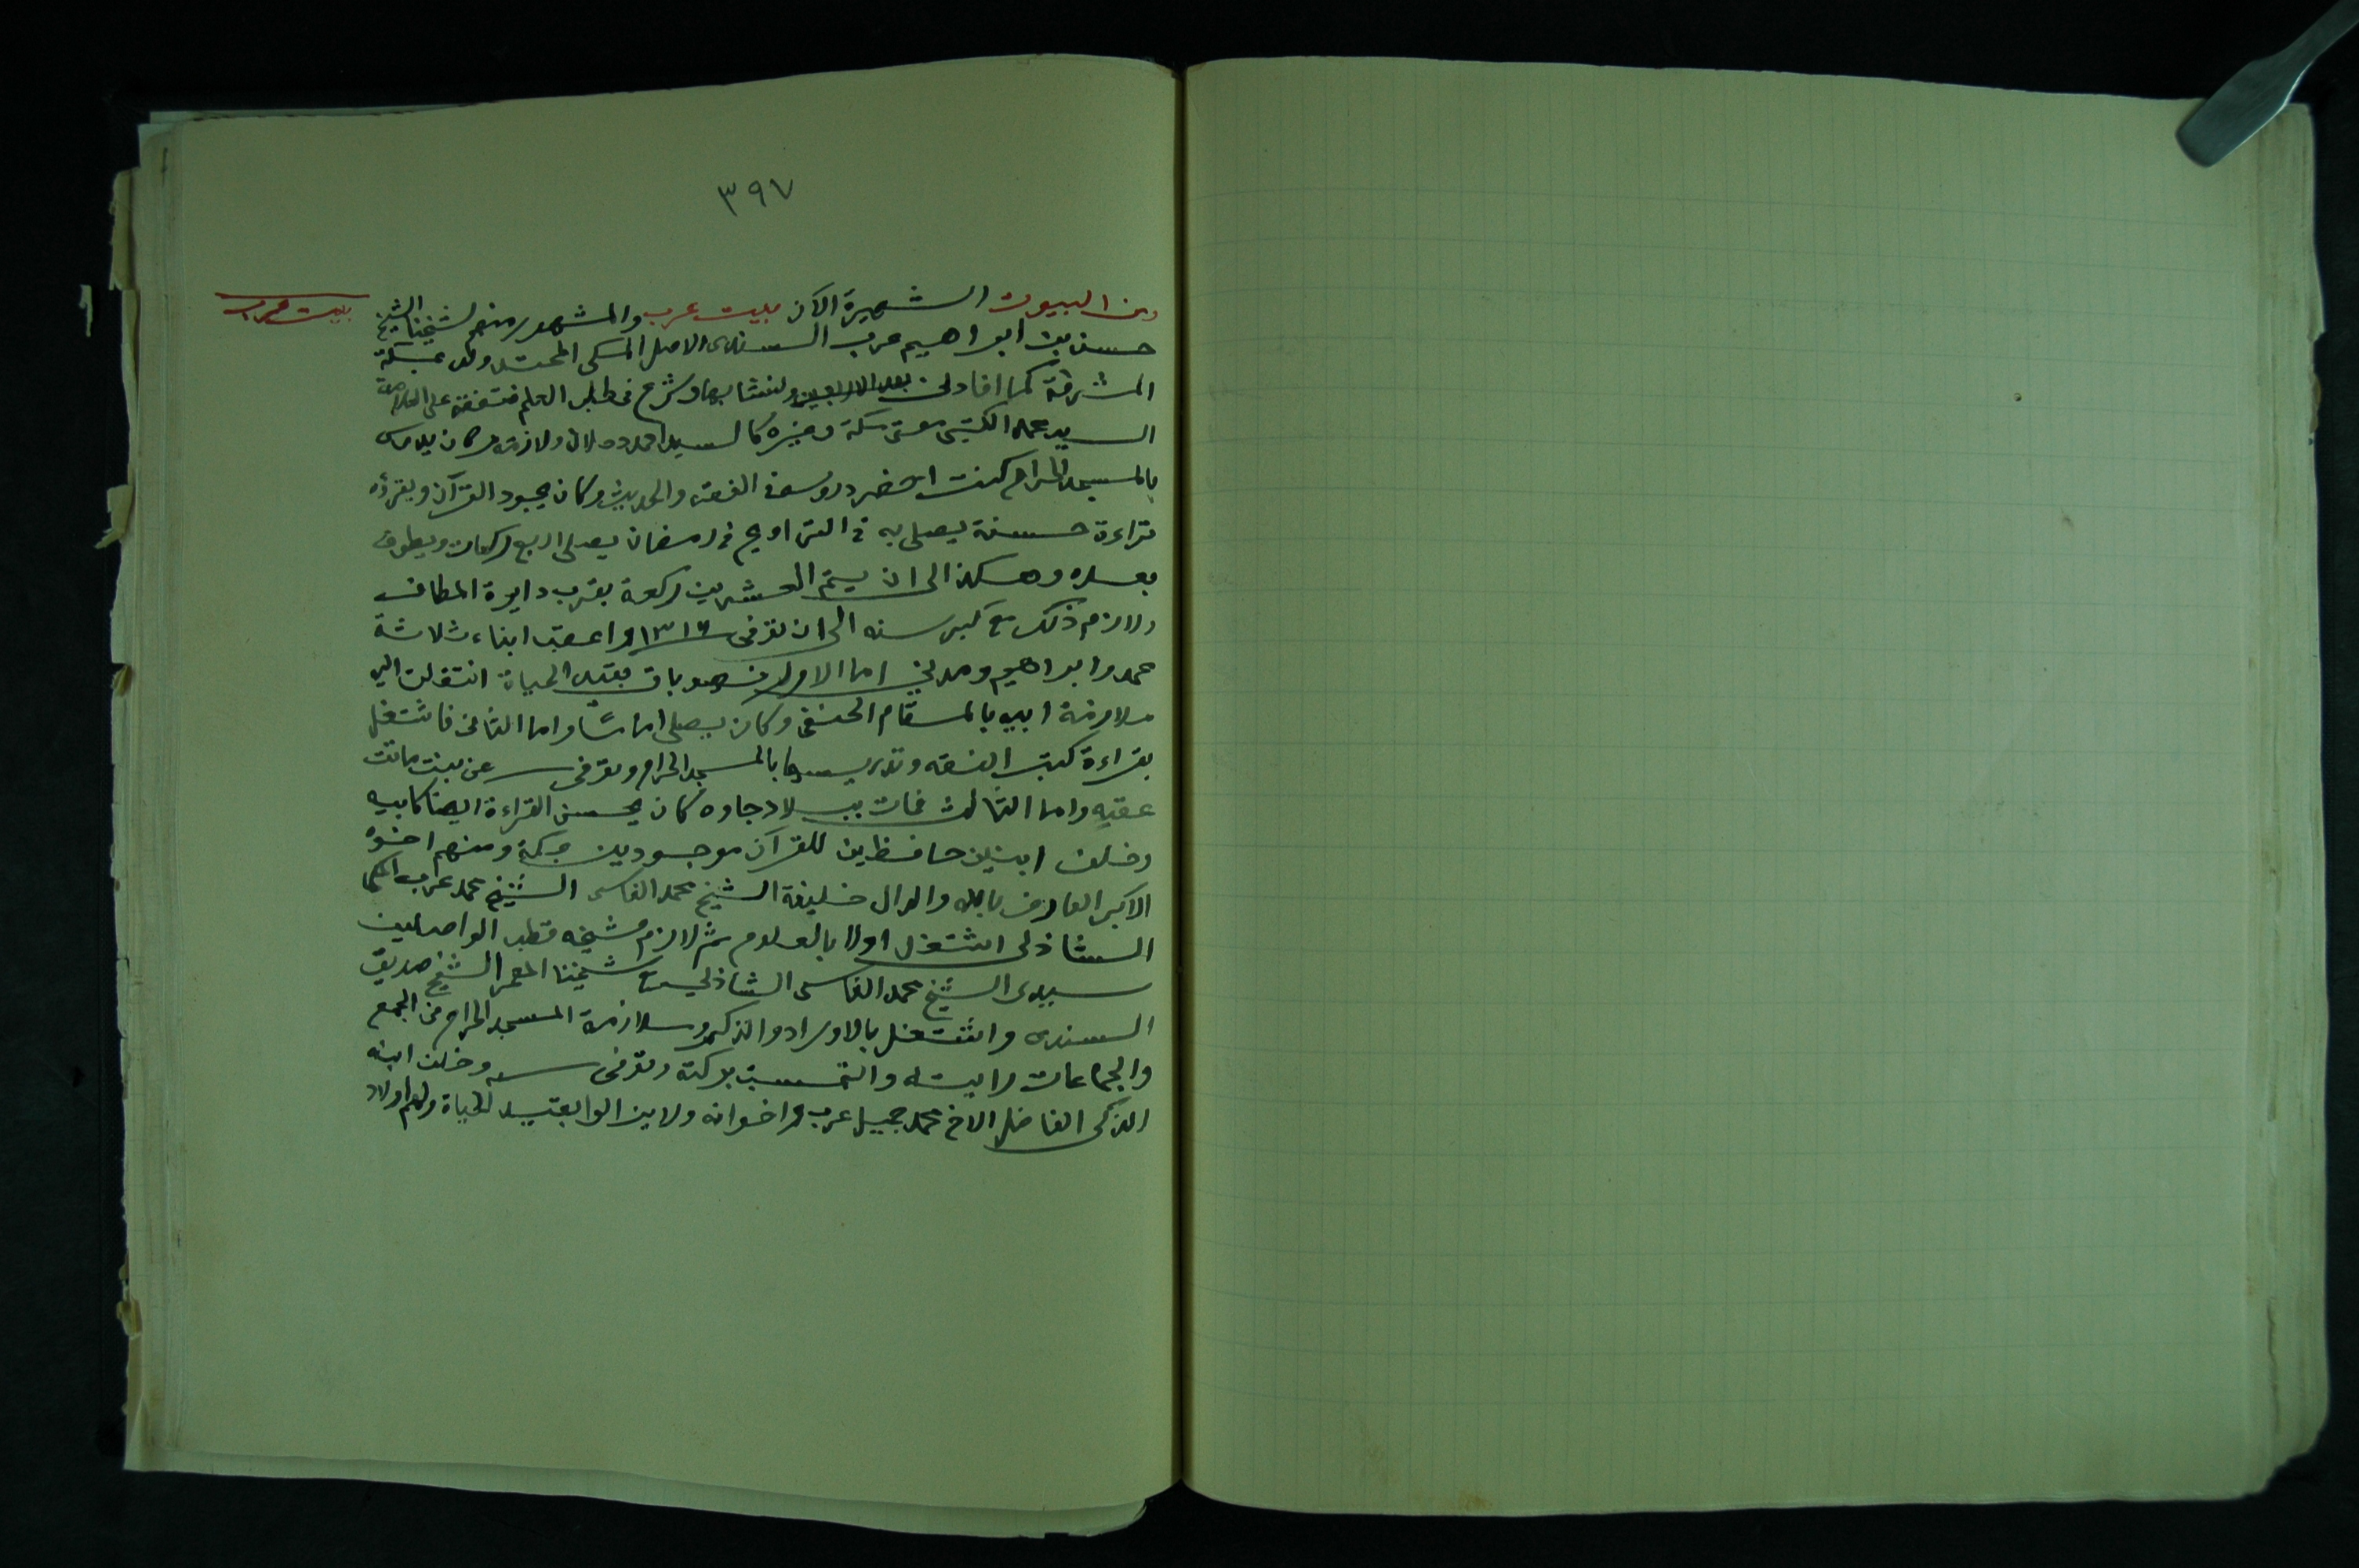 ٣٩٧
بيت عرب
ومن البيوت الشهيرة الآن ببيت عرب والمشهور منهم شيخنا الشيخ
حسن بن ابراهيم عرب السندى الاصل المكى المحتد ولد بمكة
المشرفة كما افادنى بعد الاربعين ونشا بها وشرع فى طلب العلم فتفقه على العلامة
السيد محمد الكتبى مفتى مكة وغيره كالسيد احمد دحلان ولازمه وكان يدرس
بالمسجد الحرام كنت احضر دروسه فى الفقه والحديث وكان يجود القرآن ويقرؤه
قراءة حسنة يصلى به فى التراويح فى رمضان يصلى اربع ركعات ويطوف
بعده وهكذا الى ان يتم العشرين ركعة بقرب دايرة المطاف
ولازم ذلك مع كبر سنه الى ان توفى ١٣١٦ واعقب ابناء ثلاثة
محمد وابراهيم ومدنى اما الاول فهو باق بقيد الحياة انتقلت اليه
ملازمة ابيه بالمقام الحنفى وكان يصلى اماما واما الثانى فاشتغل
بقراءة كتب الفقه وتدريسها بالمسجد الحرام وتوفى عن بنت ماتت
عقبه واما الثالث فمات ببلاد جاوه كان يحسن القراءة ايضا كابيه
وخلف ابنين حافظين للقرآن موجودين بمكة ومنهم اخوه
الاكبر العارف بالله والدال خليفة الشيخ محمد الفاسى الشيخ محمد عرب المكى
الشاذلى اشتغل اولا بالعلوم ثم لازم شيخه قطب الواصلين
سيدى الشيخ محمد الفاسى الشاذلى مع شيخنا المعمر الشيخ صديق
السندى واشتغل بالاوراد والذكر وملازمة المسجد الحرام فى الجمع
والجماعات رايته والتمست بركته وتوفى سنه وخلف ابنه
الذكى الفاضل الاخ محمد جميل عرب واخوانه ولا يزالوا بقيد الحياة ولهم اولاد